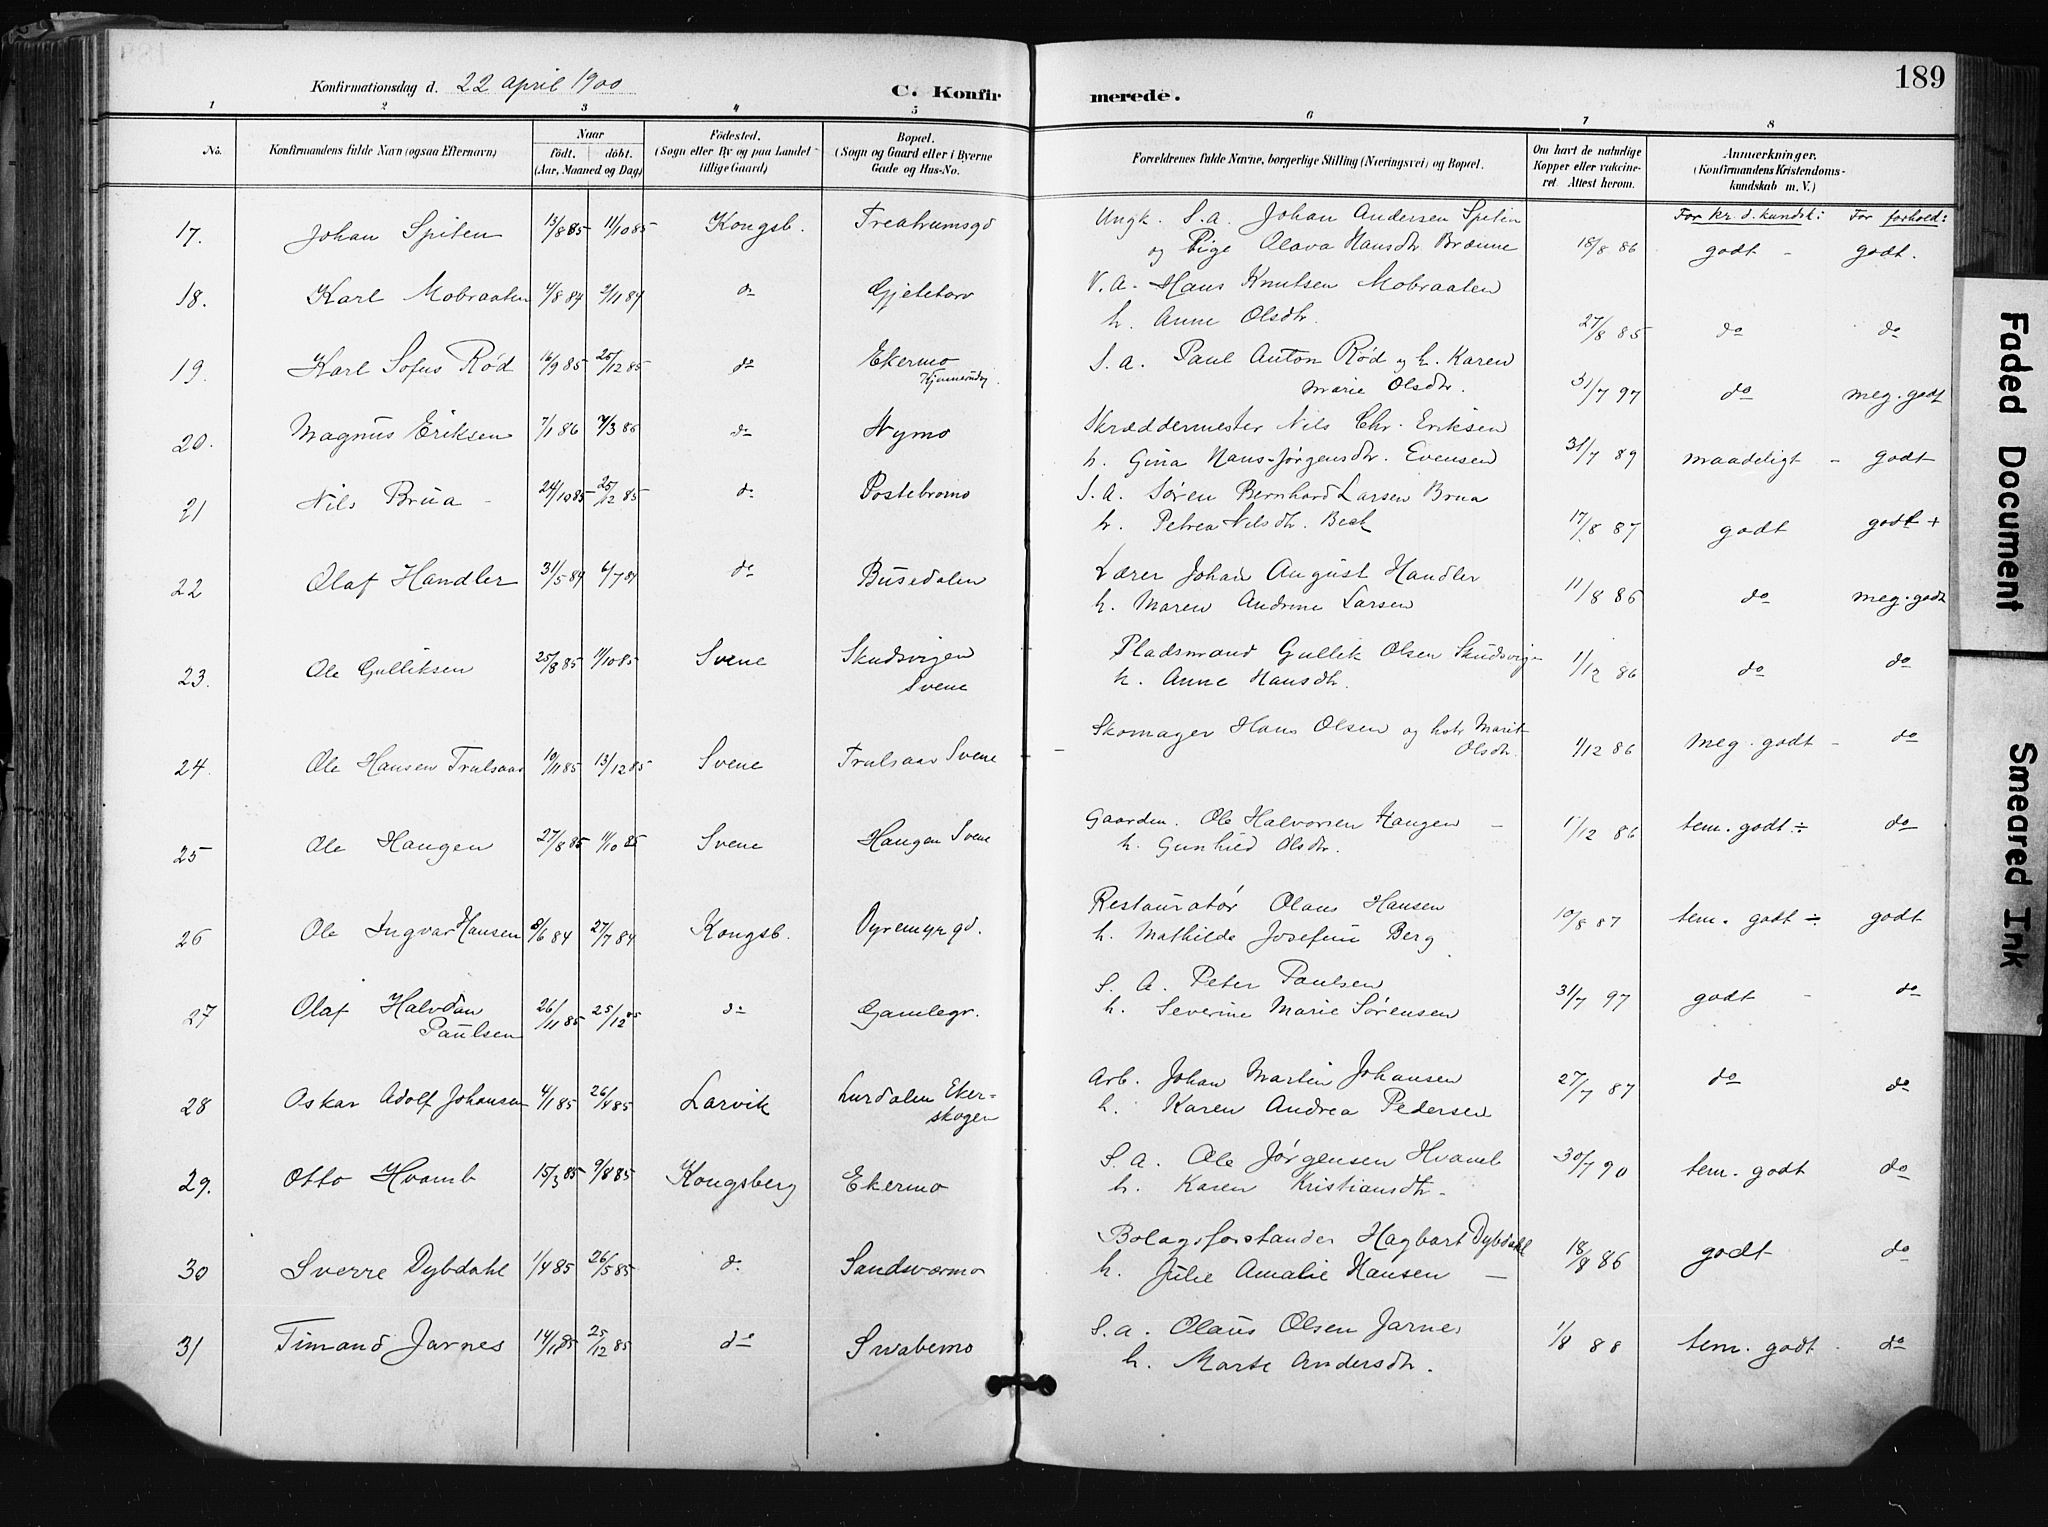 Konfirmationsdag d. 22 april 1900 C. Konfirmerede. 189
1 2 3 4 5 6 7 8
No. Konfirmandens fulde Navn (ogsaa Efternavn) Naar født. døbt. (Aar, Maaned og Dag) Fødested. (Sogn eller By og paa Landet tillige Gaard) Bopæl. (Sogn og Gaard eller i Byerne Gade og Hus-No. Forældrenes fulde Navne, borgerlige Stilling (Næringsvei) og Bopæl. Om havt de naturlige Kopper eller vakcineret. Attest herom. Anmærkninger. (Konfirmandens Kristendomskundskab m. V.)
For kr. d. kundsk: For forhold:
17. Johan Spiten 13/8 85 11/10 85 Kongsb. Treatrumsgd Ungk. S. a. Johan Andersen Spiten
og Pige Olava Hansdtr Brænne 18/8 86 godt - godt.
18. Karl Mobraaten 4/8 84 2/11 84 do Gjetetorv V. A. Hans Knutsen Mobraaten
h. Anne Olsdtr. 27/8 85 do do
19. Karl Sofus Rød 16/9 85 25/12 85 do Ekermo S. a. Paul Anton Rød og h. Karen
Marie Olsdtr. 31/7 97 do meg. godt
20. Magnus Eriksen 7/1 86 7/3 86 do Nymo Skræddermester Nils Chr. Eriksen
h. Gina Hans-Jørgensdtr. Evensen 31/7 89 maadeligt - godt
21 Nils Brua - 24/10 85 25/12 85 do Postebromo S. A. Søren Bernhard Larsen Brua
h. Petrea Nilsdtr. Beck 17/8 87 godt godt +
22 Olaf Handler 31/5 84 6/7 84 do Busedalen Lærer Johan August Handler
h. Maren Andrine Larsen 11/8 86 do meg. godt
23. Ole Gulliksen 25/8 85 11/10 85 Svene Skudsvigen
Svene Pladsmand Gullik Olsen Skudsvigen
h. Anne Hansdtr. 1/12 86 do do
24. Ole Hansen Trulsaas 10/11 85 13/12 85 Svene Trulsaas Svene Skomager Hans Olsen og hstr Marit
Olsdtr. 1/12 86 Meg. godt - do
25 Ole Haugen 27/8 85 11/10 85 Svene Haugen Svene Gaardm. Ole Halvorsen Haugen -
h. Gunhild Olsdtr. 1/12 86 tem. godt ÷ do
26 Ole Ingvar Hansen 8/6 84 27/7 84 Kongsb. Dyremyrgd. Restauratør Olaus Hansen
h. Mathilde Josefine Berg 10/8 87 tem. godt ÷ godt
27 Olaf Halvdan
Paulsen 26/11 85 25/12 85 do Gamlegr. S. A. Peter Paulsen
h. Severine Marie Sørensen 31/7 97 godt - do
28 Oskar Adolf Johansen 4/1 85 26/4 85 Larvik Lurdalen Eker=
skogen Arb. Johan Martin Johansen
h. Karen Andrea Pedersen 27/7 87 do do
29. Otto Hvamb 15/3 85 9/8 85 Kongsberg Ekermo S. A. Ole Jørgensen Hvamb
h. Karen Kristiansdtr - 30/7 90 tem. godt do
30 Sverre Dybdahl 1/4 85 26/5 85 do Sandsværmo Bolagsforstander Hagbart Dybdahl
h. Julie Amalie Hansen - 18/8 86 godt do
31 Timand Jarnes 14/11 85 25/12 85 do Svabemo S. a. Olaus Olsen Jarnes
h. Marte Andersdtr. 1/8 88 tem. godt - do
Faded Document
Smeared Ink